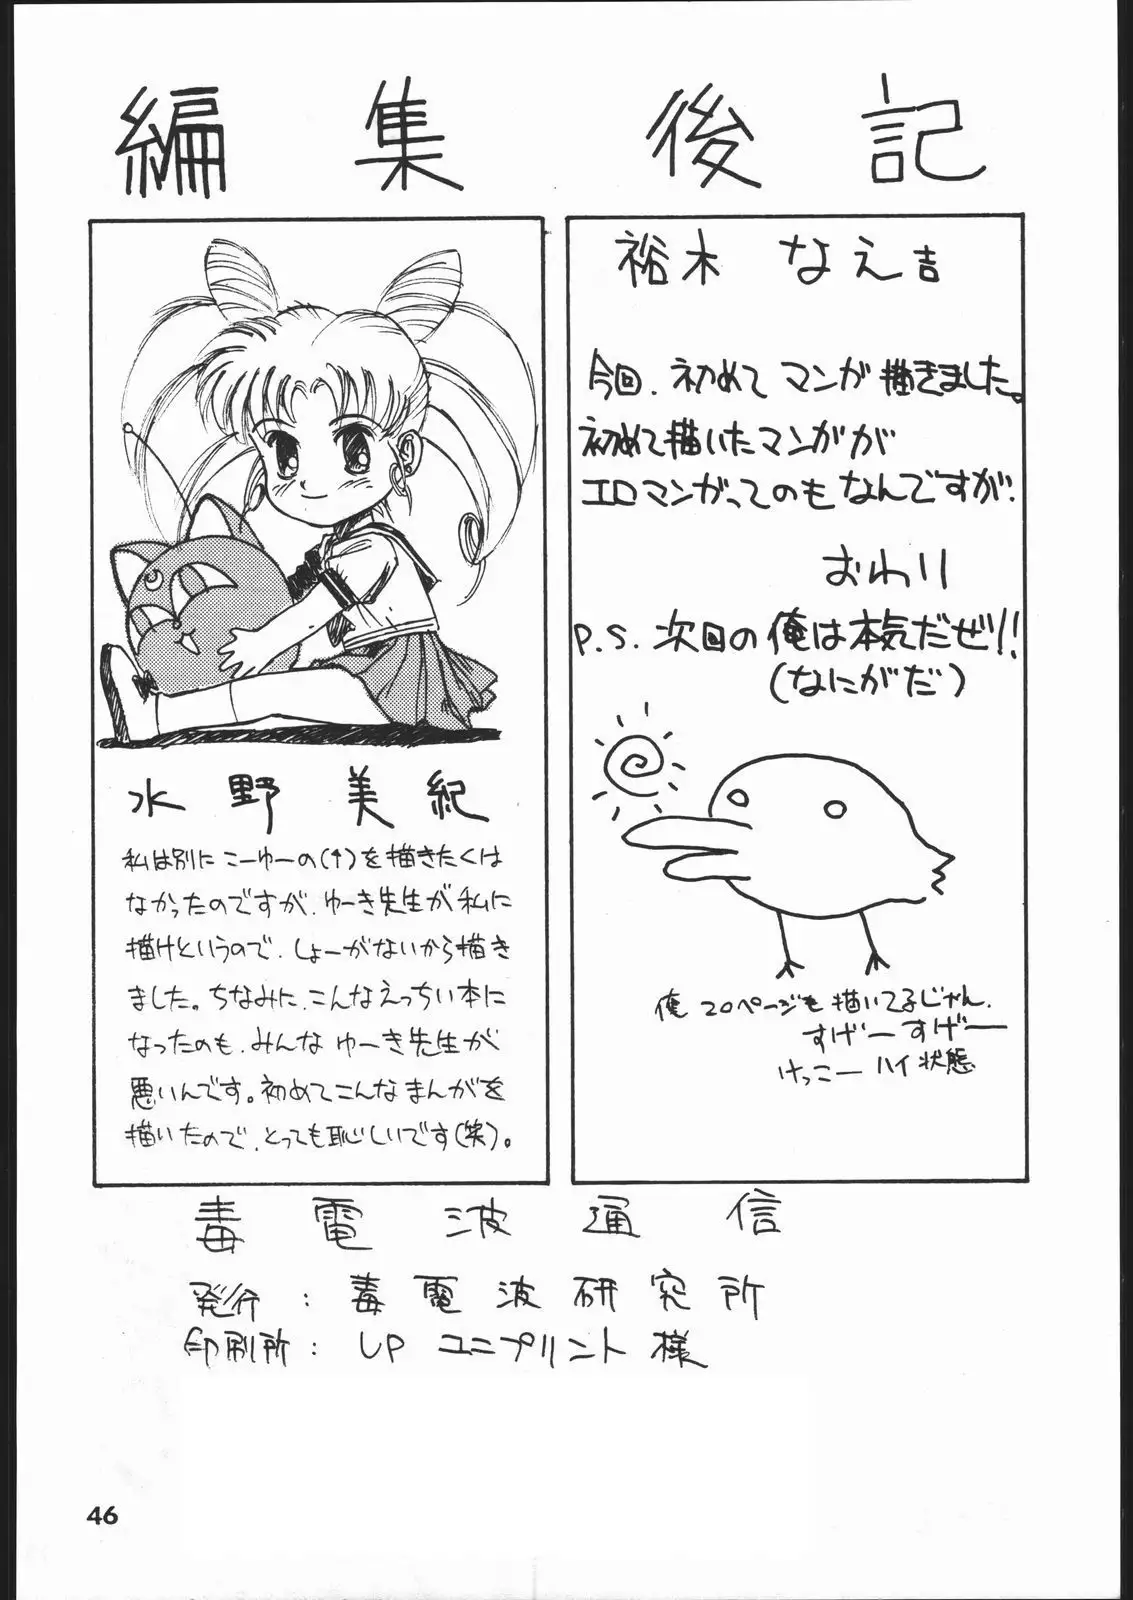 編集後記
裕木 なえ吉
今回、初めて マンガ 描きました。
初めて描いたマンガが
エロマンガってのも なんですが、
おわり
P.S. 次回の 俺は本気だぜ!!
(なにがだ)
俺 20ページも 描いてるじゃん、
すげーすげー
けっこー ハイ状態
水野美紀
私は別にこーゆーの(↑)を描きたくは
なかったのですが、ゆーき先生が私に
描けというので、しょーがないから描き
ました。ちなみに、こんなえっちい本に
なったのも、みんな ゆーき先生が
悪いんです。初めてこんなまんがを
描いたので、とっても恥しいです(笑)。
毒電波通信
発行：毒電波研究所
印刷所：UP ユニプリント 様
46